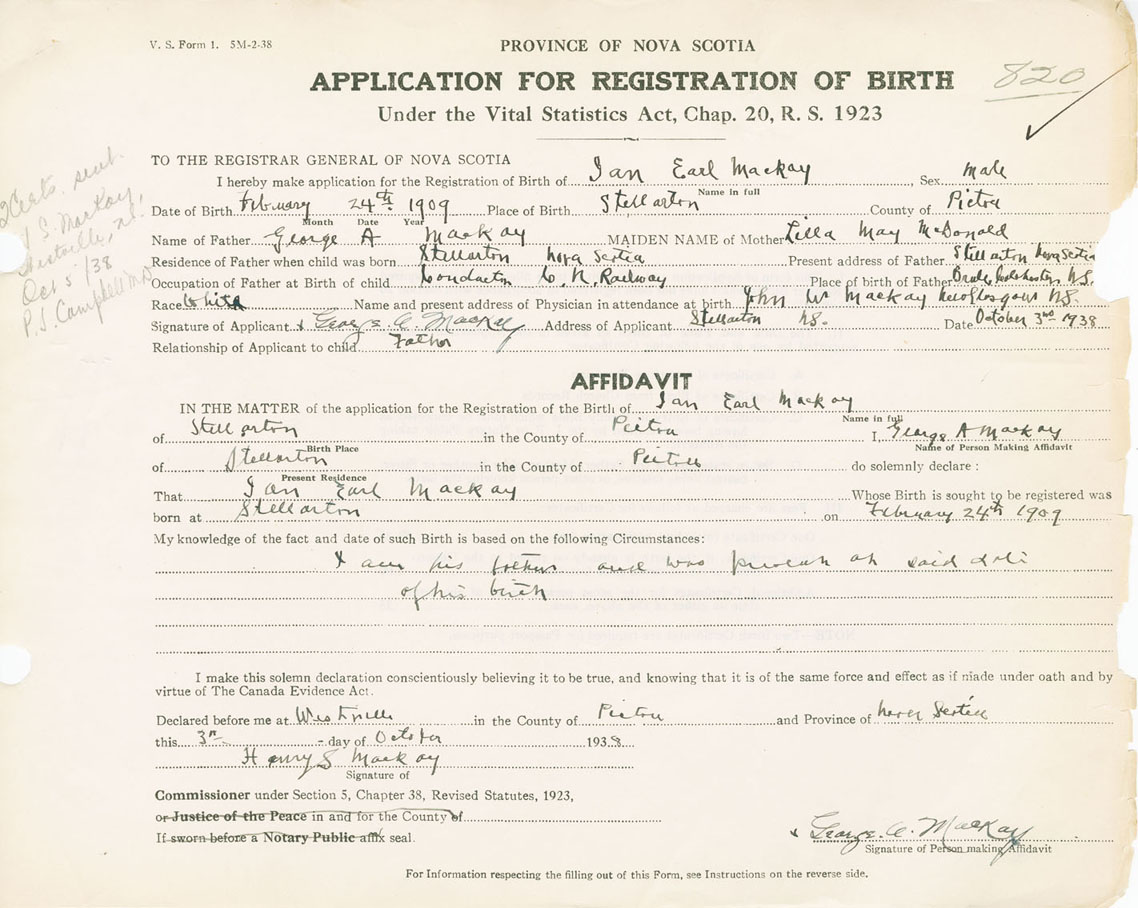 V. S. Form 1. 5M-2-38
PROVINCE OF NOVA SCOTIA
820
APPLICATION FOR REGISTRATION OF BIRTH
Under the Vital Statistics Act, Chap. 20, R. S. 1923
2 Certs. sent
S. MacKay,
Westville, N.S.
Oct 5/38
P.S. Campbell M.D.
TO THE REGISTRAR GENERAL OF NOVA SCOTIA
I hereby make application for the Registration of Birth of Ian Earl Mackay, Sex male
Name in full
Date of Birth February 24th 1909 Place of Birth Stellarton County of Pictou
Month Date Year
Name of Father George A Mackay MAIDEN NAME of Mother Lilla May McDonald
Residence of Father when child was born Stellarton Nova Scotia Present address of Father Stellarton Nova Scotia
Occupation of Father at Birth of child Conductor C. N. Railway Place of birth of Father Colchester N.S.
Race White Name and present address of Physician in attendance at birth John W Mackay New Glasgow N.S.
Signature of Applicant x George A. MacKay Address of Applicant Stellarton N.S. Date October 3rd 1938
Relationship of Applicant to child Father
AFFIDAVIT
IN THE MATTER of the application for the Registration of the Birth of Ian Earl Mackay
Name in full
of Stellarton in the County of Pictou I, George A Mackay
Birth Place Name of Person Making Affidavit
of Stellarton in the County of Pictou do solemnly declare :
Present Residence
That Ian Earl Mackay Whose Birth is sought to be registered was
born at Stellarton on February 24th 1909
My knowledge of the fact and date of such Birth is based on the following Circumstances:
I am his father and was present at said date
of his birth
I make this solemn declaration conscientiously believing it to be true, and knowing that it is of the same force and effect as if made under oath and by
virtue of The Canada Evidence Act.
Declared before me at Westville in the County of Pictou and Province of Nova Scotia
this 3rd day of October 1938
Henry S Mackay
Signature of
Commissioner under Section 5, Chapter 38, Revised Statutes, 1923,
or Justice of the Peace in and for the County of
If sworn before a Notary Public affix seal.
x George A. MacKay
Signature of Person making Affidavit
For Information respecting the filling out of this Form, see Instructions on the reverse side.